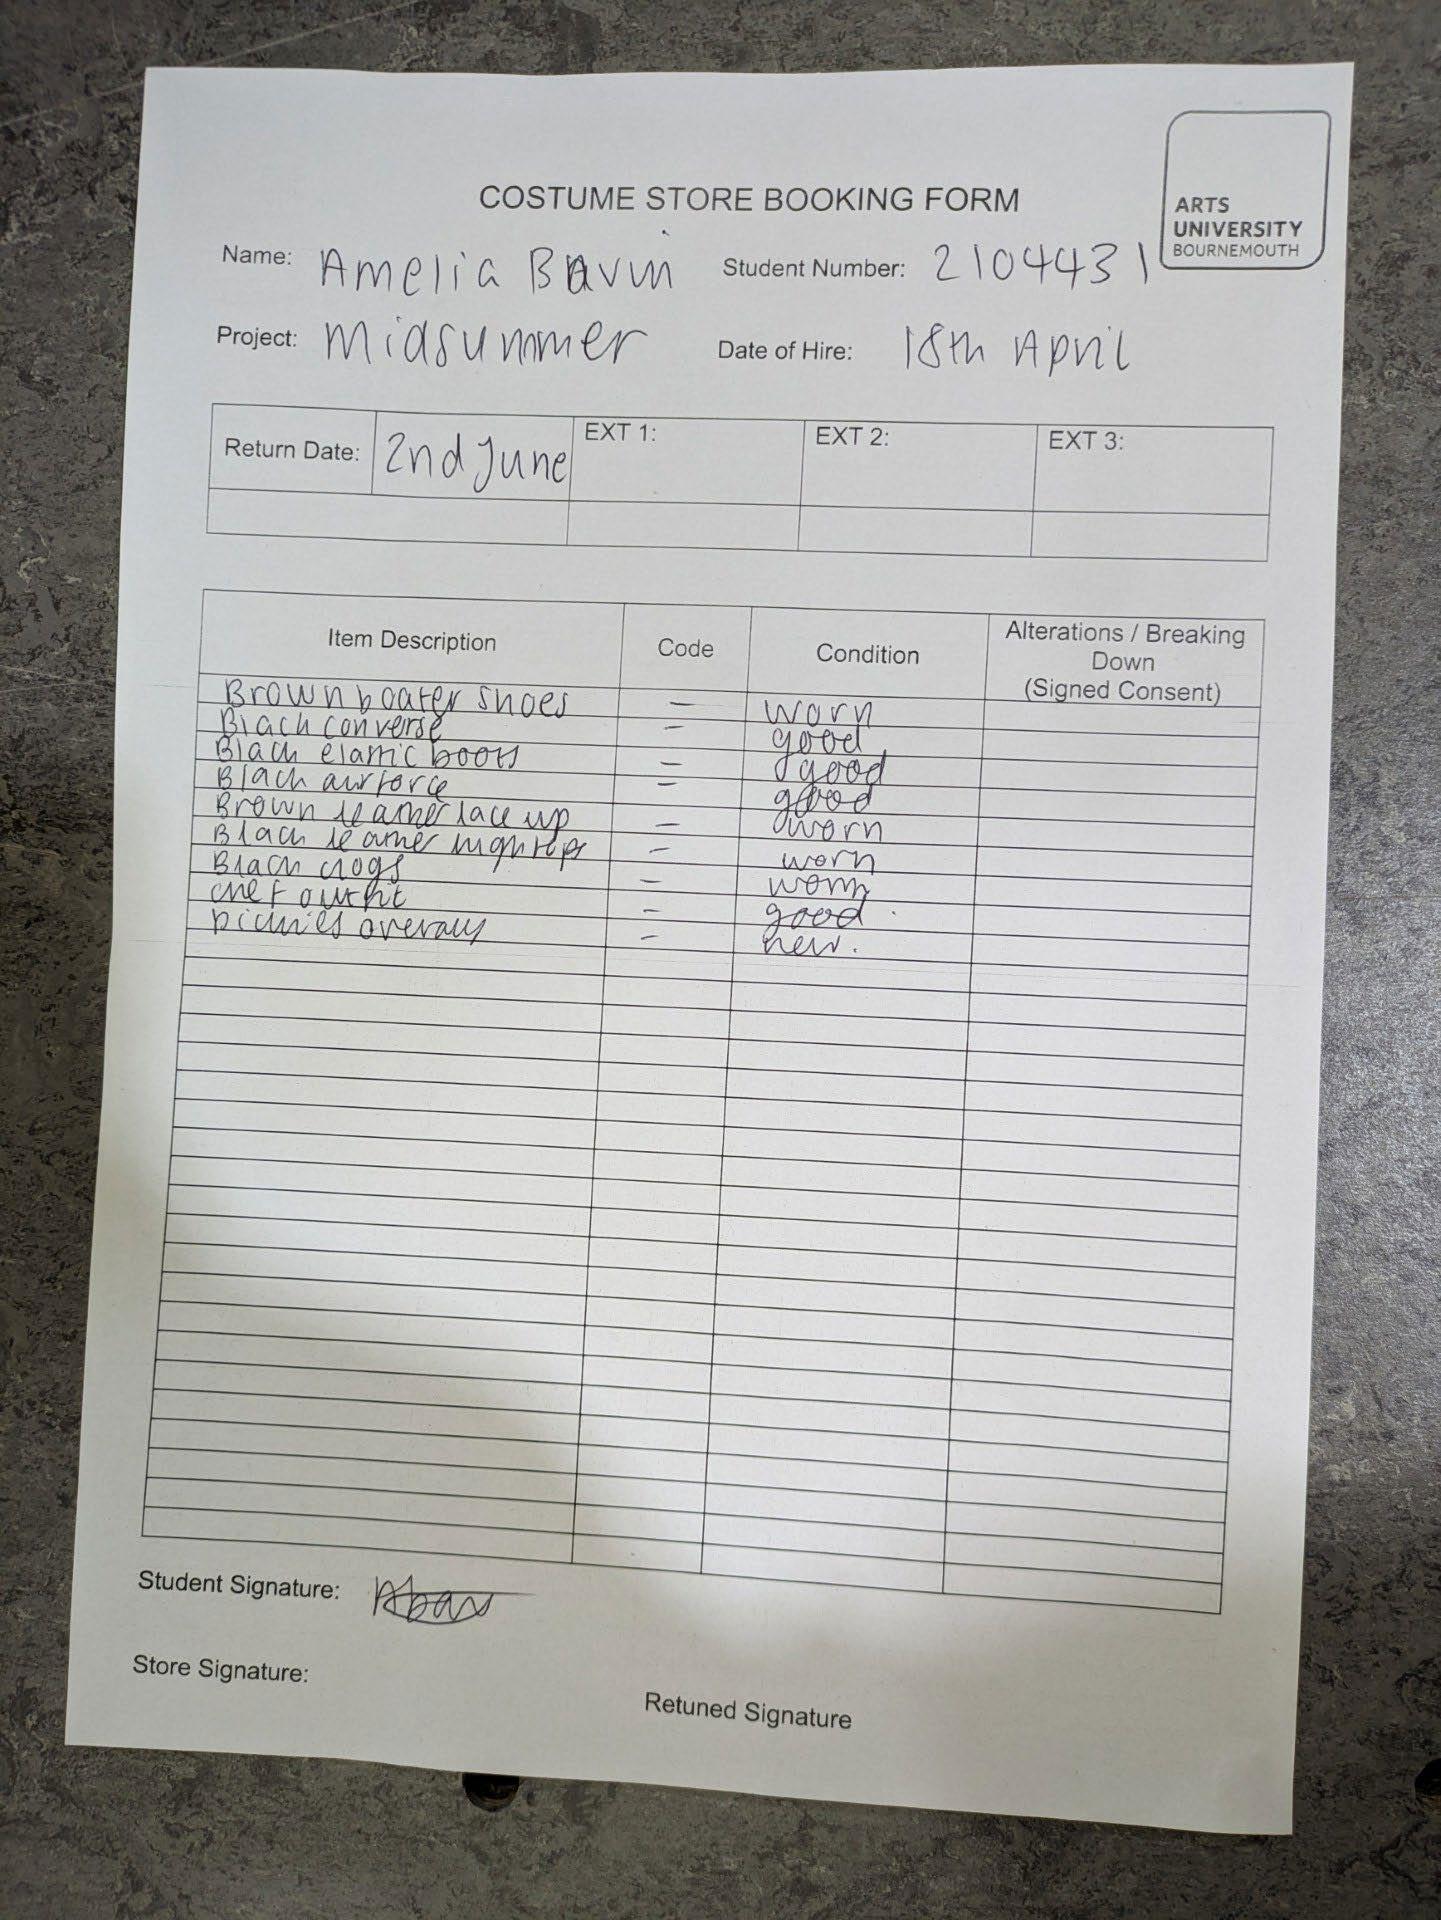 ARTS
UNIVERSITY
BOURNEMOUTH
COSTUME STORE BOOKING FORM
Name: Amelia Bavin Student Number: 2104431
Project: Midsummer Date of Hire: 18th April
Return Date: 2nd June EXT 1: EXT 2: EXT 3:
Item Description Code Condition Alterations / Breaking Down (Signed Consent)
Brown boater shoes - worn
Black converse - good
Black elastic boots - good
Black airforce - good
Brown leather lace up - worn
Black leather hightops - worn
Black clogs - worn
chef outfit - good
Dickies overalls - new.
Student Signature:
Store Signature:
Retuned Signature